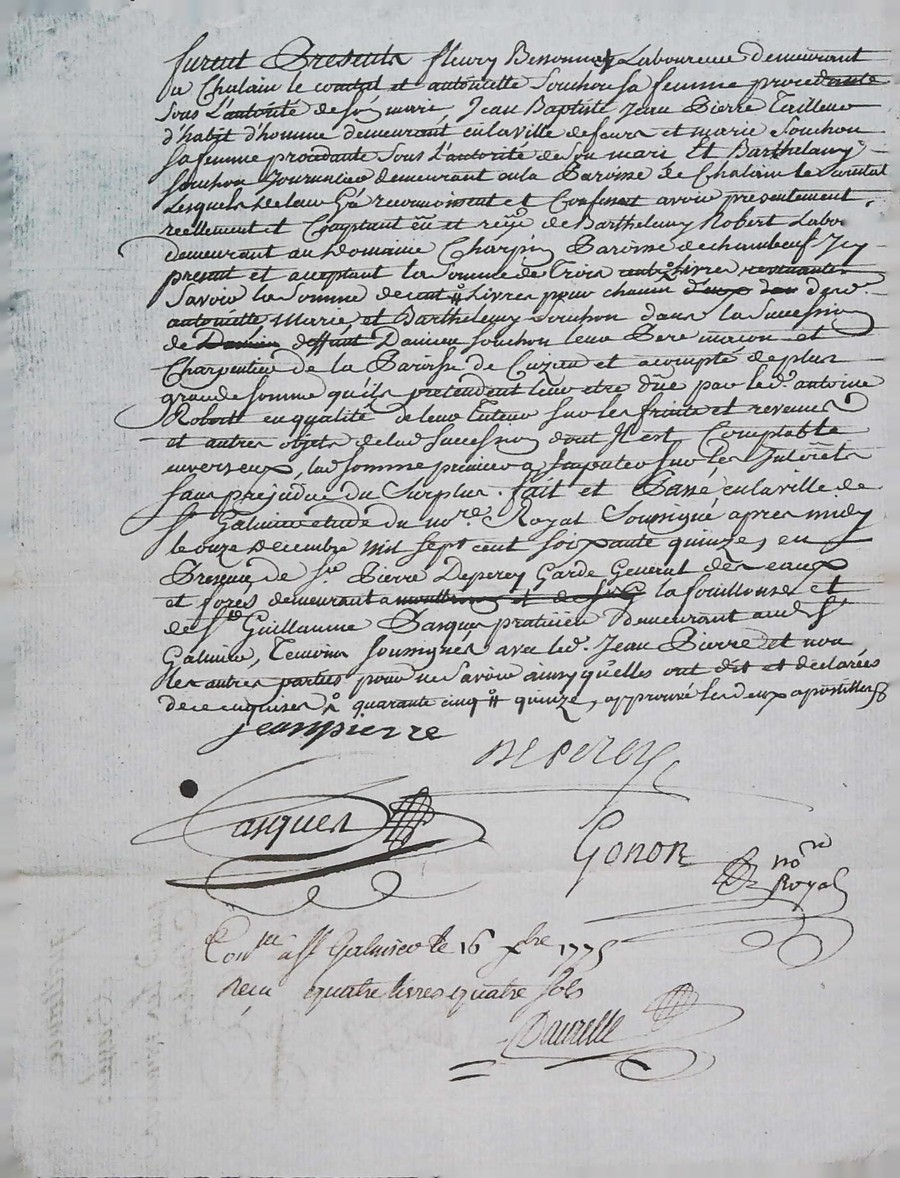 furent Presents fleury Bessonnay Laboureur demeurant
a Chalain le comtal et antoinette Souchon sa femme procedante
sous L'autorité de son mari, Jean Baptiste Jean Pierre Tailleur
d'habit d'homme demeurant en la ville de feurs et marie Souchon
sa femme procedante sous L'autorité de son mari Et Barthelemy
Souchon Journalier demeurant en la Paroisse de Chalain le Comtal
Lesquels de leur gré reconnoissent et Confessent avoir presentement
reellement et Comptant eu et reçu de Barthelemy Robert Labor
demeurant au Domaine Charpin Paroisse de chambeuf Icy
present et acceptant la Somme de Trois cent livres
Savoir la Somme de cent livres pour chacun d.
antoinette Marie, et Barthelemy Souchon dans la Succession
de Damien deffunt Damien Souchon leur Pere macon et
Charpentier de la Paroisse de Cuzieu et acompte de plus
grande somme qu'ils pretendent leur etre düe par led. antoine
Robert en qualité de leur Tuteur sur les fruits et revenus
et autres objets de lad succession dont Il est Comptable
envers eux, lad somme premiere a Imputer sur les Interêts
sans prejudice du Surplus. fait et Passé, en la ville de
St Galmier etude du nore. Royal Soussigné apres midy
le onze decembre mil sept cent soixante quinze, en
Presence de Sr. Pierre Deperey Garde General des eaux
et forés demeurant a la fouillouse et
de Sr Guillaume Pasques praticien demeurant aud St
Galmier, Temoins soussignés avec led. Jean Pierre et non
les autres parties pour ne savoir ainsy qu'elles ont dit et declarées
de ce enquises quarante cinq quinze, approuvé les deux apostilles
jeanpierre
DePerey
Pasques
Gonon
nore
Royal
Conlé a St Galmier le 16 xbre 1775
Reçu quatre livres quatre sols
Daurelle